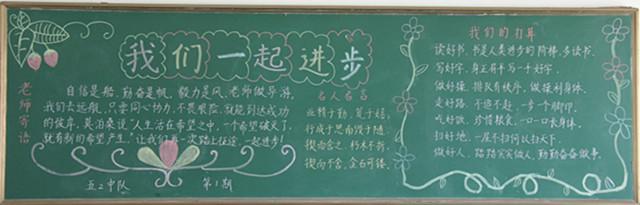 我们一起进步
老师寄语
自信是船，勤奋是帆，毅力是风，老师做导游，
我们去远航，只要同心协力，不畏艰险，就能到达成功
的彼岸，莫泊桑说"人生活在希望之中，一个希望破灭了，
就有新的希望产生。"让我们再一次踏上征途，一起进步！
五2中队
第1期
名人名言
业精于勤，荒于嬉；
行成于思而毁于随。
锲而舍之，朽木不折，
锲而不舍，金石可镂。
我们的打算
读好书，书是人类进步的阶梯，多读书。
写好字，身正肩平写一手好字。
做好操，排队有秩序，做操利身体。
走好路，不追不赶，一步一个脚印。
吃好饭，珍惜粮食，一口一口长身体。
扫好地，一屋不扫何以扫天下。
做好人，踏踏实实做人，勤勤奋奋做事。